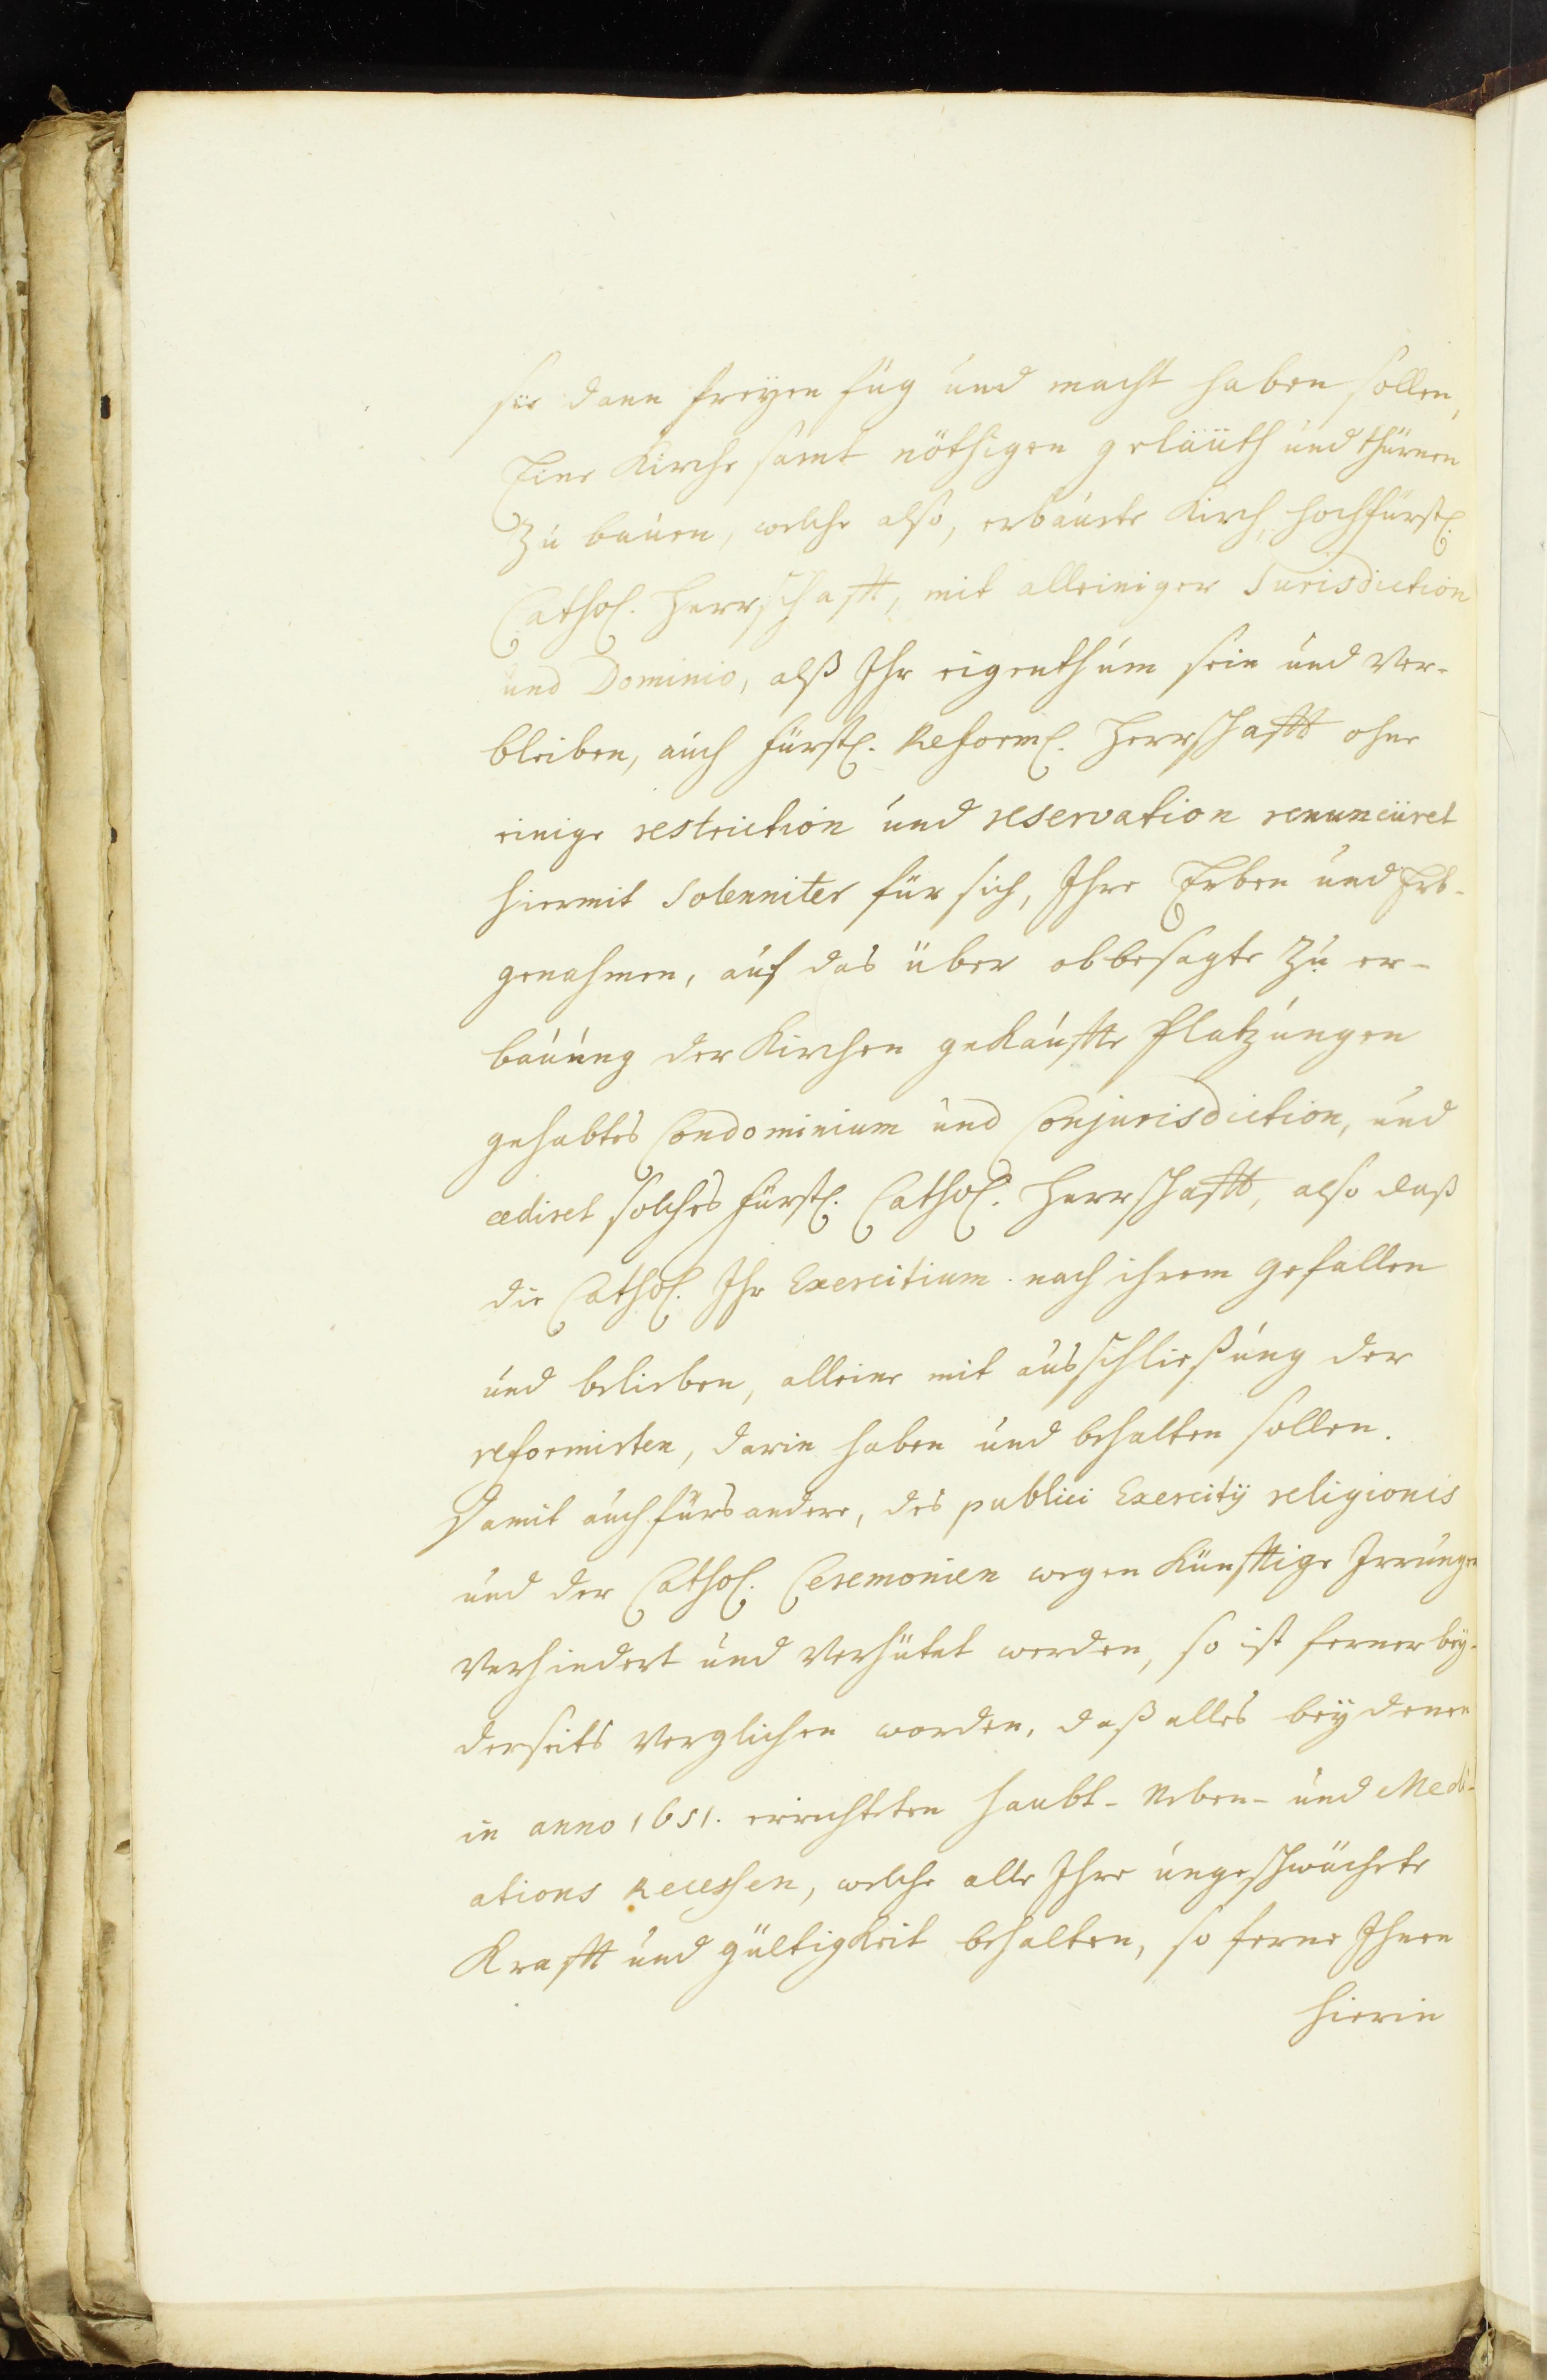 sie dann freÿen fug und macht haben sollen,
Eine Kirche samt nöthigen geläüth und thürnen
Zu bauen, welche also, erbaute Kirch, hochfürstl.
Cathol. Herrschafft, mit alleiniger Jurisdiction
und Dominio, alß Ihr eigenthum sein und Ver-
bleiben, auch fürstl. Reforml. Herrschafft ohne
einige restriction und reservation renunciiret
hiermit Solenniter für sich, Ihre Erben und Erb-
genahmen, auf das über obbesagte Zu er-
bauung der Kirchen gekauffte Platzungen
gehabtes Condominium und Conjurisdiction, und
cediret solches fürstl. Cathol. Herrschafft, also daß
die Cathol. Ihr Exercitium nach ihrem gefallen
und belieben, alleine mit ausschließung der
reformirten, darin haben und behalten sollen.
Damit auch fürs andere, des publici Exercitÿ religionis
und der Cathol. Ceremonien wegen künfftige Irrungen
Verhindert und Verhütet werden, so ist ferner beÿ-
derseits Verglichen worden, daß alles beÿ denen
in anno 1651. errichteten haubt- Neben- und Medi-
ations Recessen, welche alle Ihre ungeschwächete
Krafft und gültigkeit behalten, so ferne Ihnen
hierin